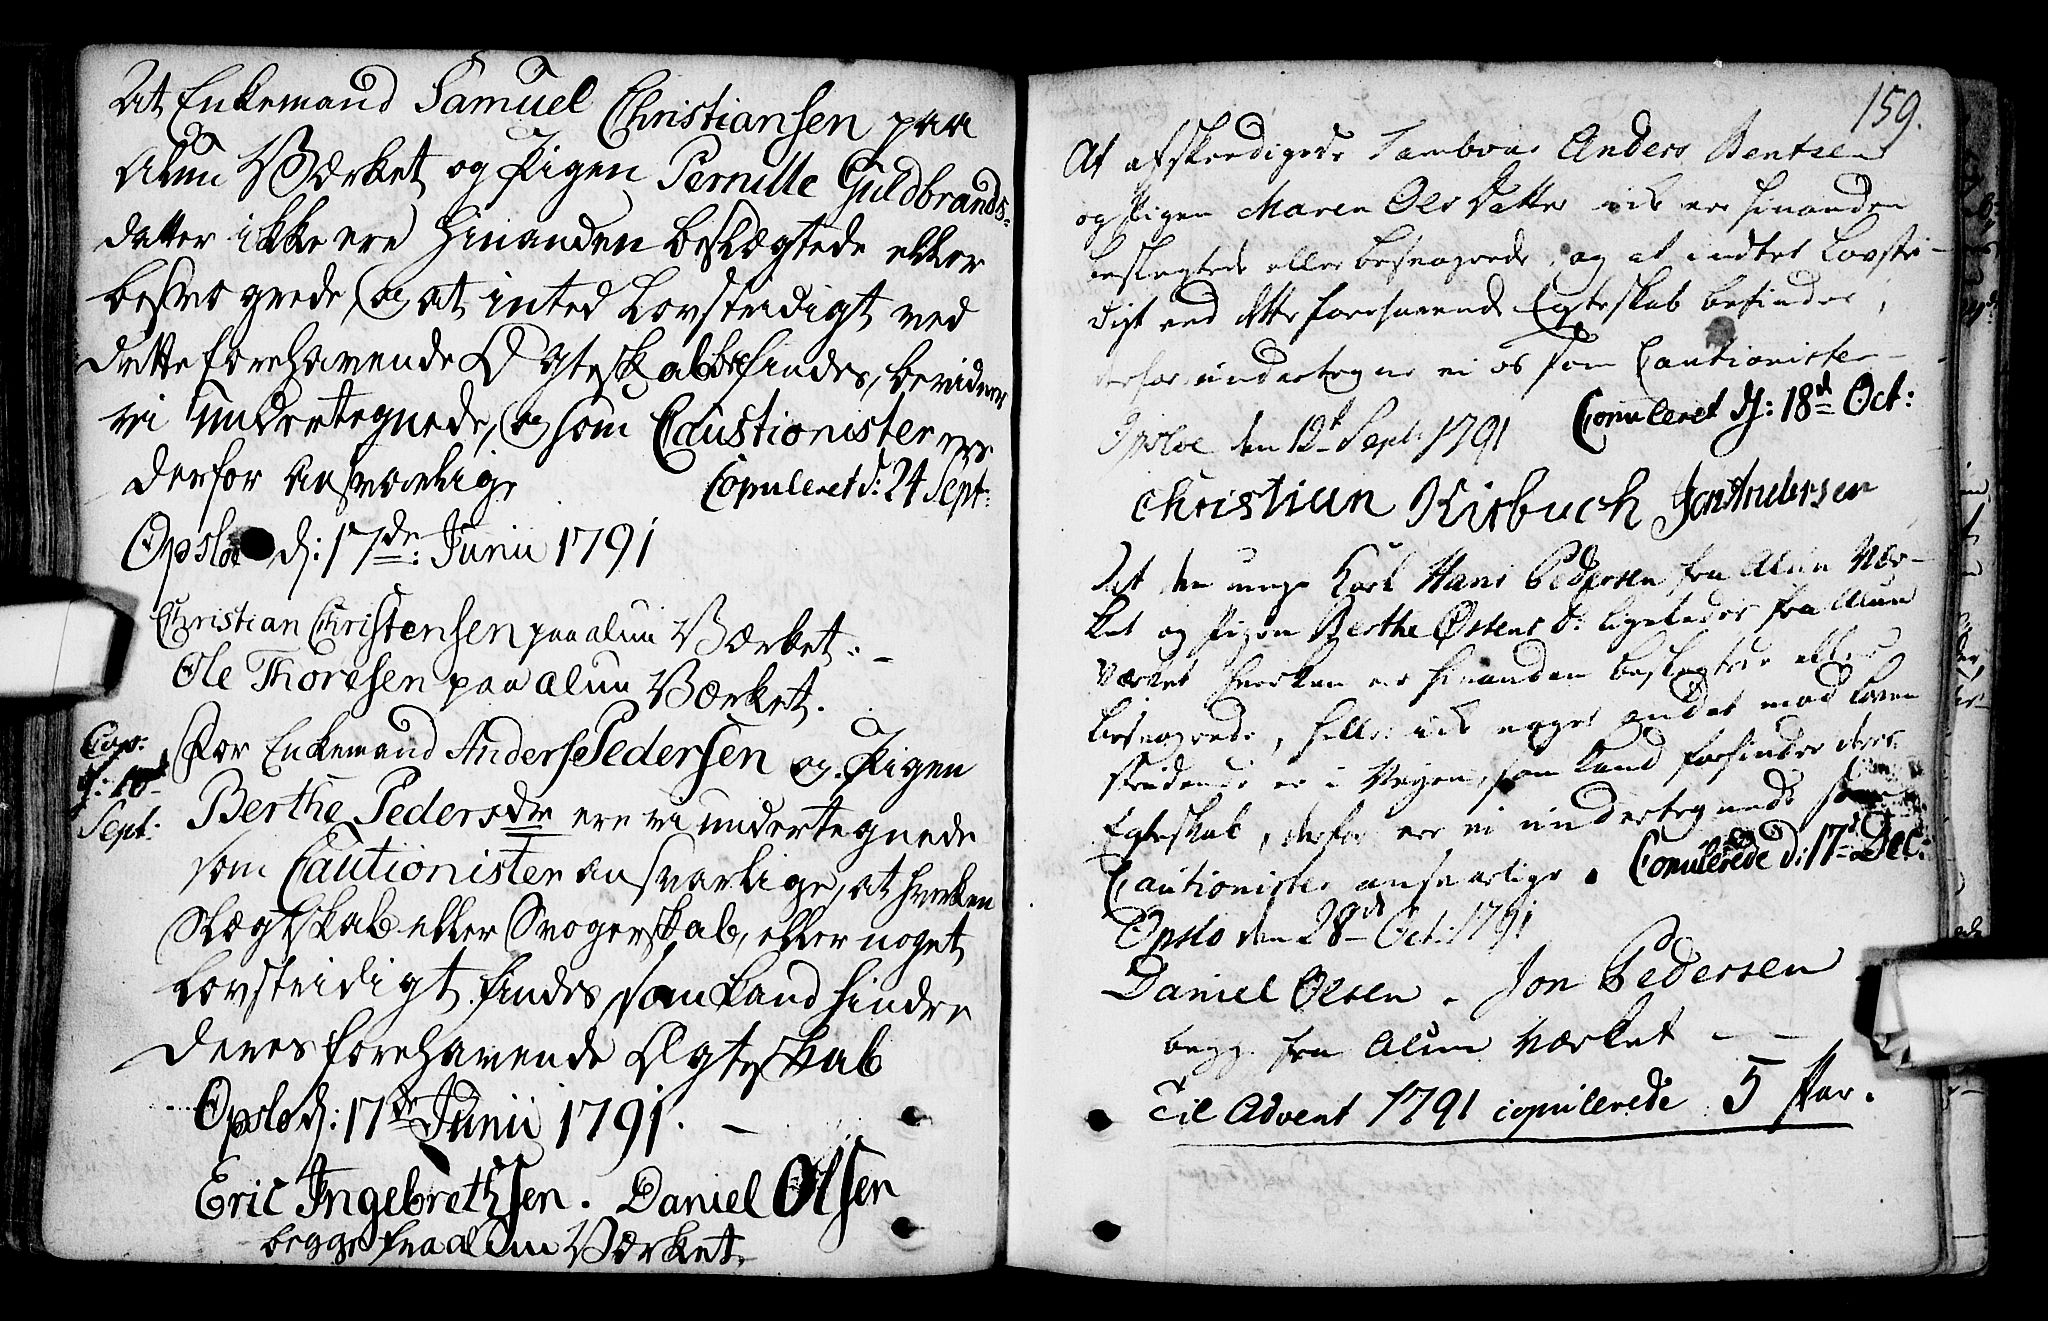 At Enkemand Samuel Christiansen paa
Alun Værket og Pigen Pernille Guldbrands-
datter ikke ere hinanden beslægtede eller
besvogrede, og at inted Lovstridigt ved
dette forehavende Ægteskab befindes, bevidner
vi undertegnede, og som Caustionister ere
derfor Ansvarlige
Copuleret d: 24 Sept:
Opsloe d: 17de: Junii 1791
Christian Christensen paa alun Værket. –
Ole Thoresen paa alun Værket.
Cop:
d: 10
Sept:
For Enkemand Anders Pedersen og Pigen
Berthe Pedersdr ere vi undertegnede
som Cautionister ansvarlige, at hverken
Slægtskab eller Svogerskab, eller noget
Lovstridigt findes som kand hindre
deres forehavende Ægteskab
Opslo d: 17de Junii 1791. –
Eric Ingebretsen. Daniel Olsen
begge fra alun Værket.
159.
At afskeedigede Tambour Anders Bentsen
og Pigen Maren Ols Datter ick ere hinanden
beslegtede eller besvogrede, og at indtet Lovstri-
digt ved dette forehavende Egteskab befindes,
derfor undertegne vi os som Cautionister –
Opsloe den 12t Sept: 1791 Copuleret d: 18d Oct:
Christian Kirbuch Jon Andersen
At den unge Karl Hans Pedersen fra Alun Vær-
ket og Pigen Berthe Østens D: ligeledes fra Alun
Værket hverken er hinanden beslegtede eller
besvogrede, heller ick noget andet mod Loven
stridende er i Veyen, som kand forhindre deres
Egteskab, derfor ere vi undertegnede som
Cautionister ansvarlige. Copulerede d: 17d Dec:
Opslo den 28de Oct: 1791
Daniel Olsen. Jon Pedersen
begge fra Alun Værket – –
Til Advent 1791 copulerede 5 Par.